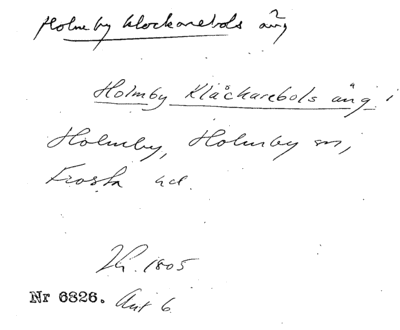 Holmeby klockarebols äng
Holmby Klåckarebols äng i
Holmby, Holmby sn,
Frosta hd.
1805
Nr 6826. Akt 6.